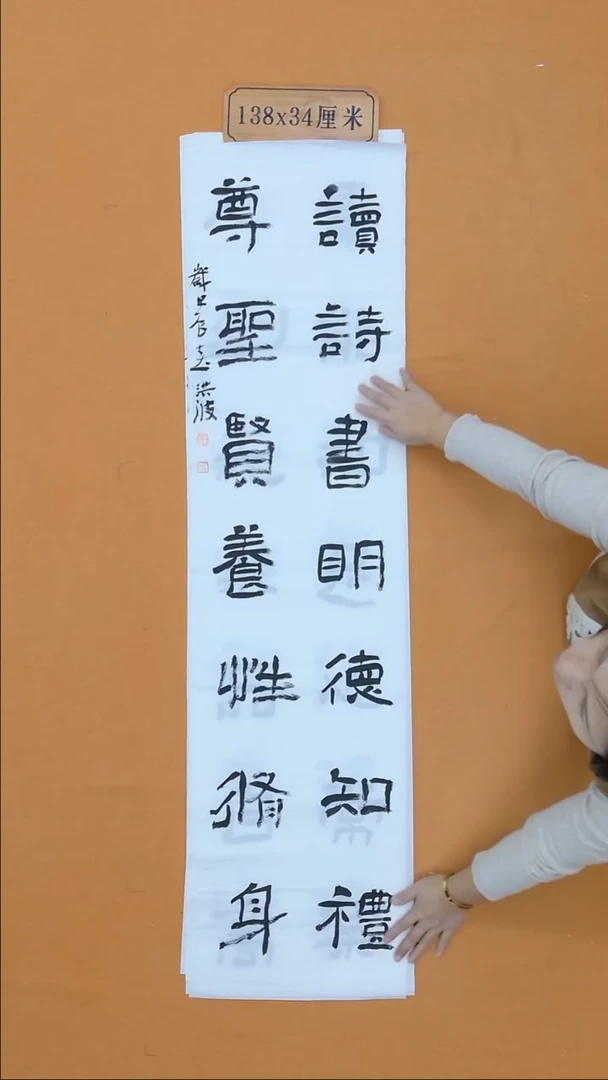 138x34厘米
讀詩書明德知禮
尊聖賢養性脩身
洪波